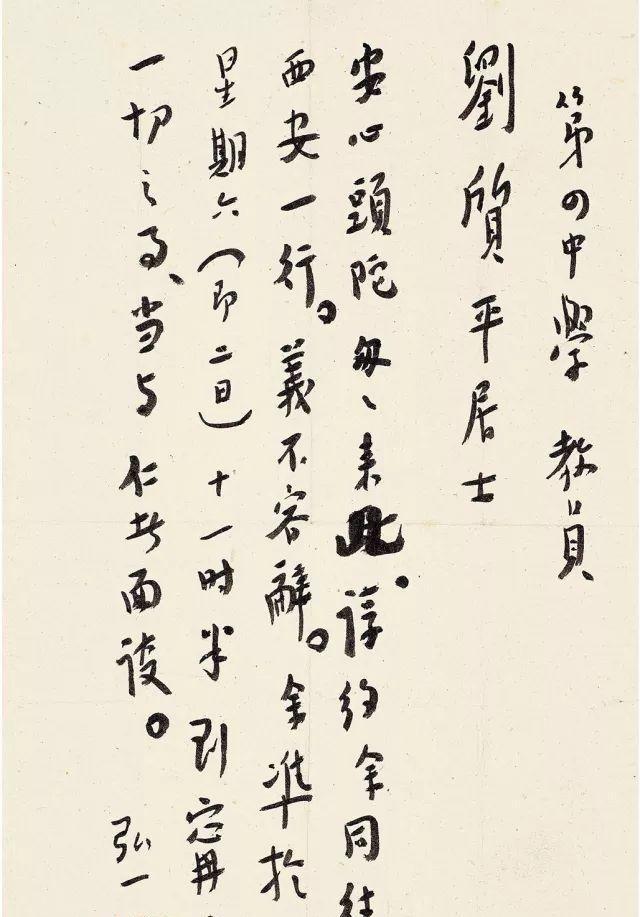 第四中學 教員
劉質平居士
安心頭陀匆〻来此。諄約余同往
西安一行。義不容辭。余準於
星期六（即二日）十一时半到
一切之事、当与仁者面談。 弘一